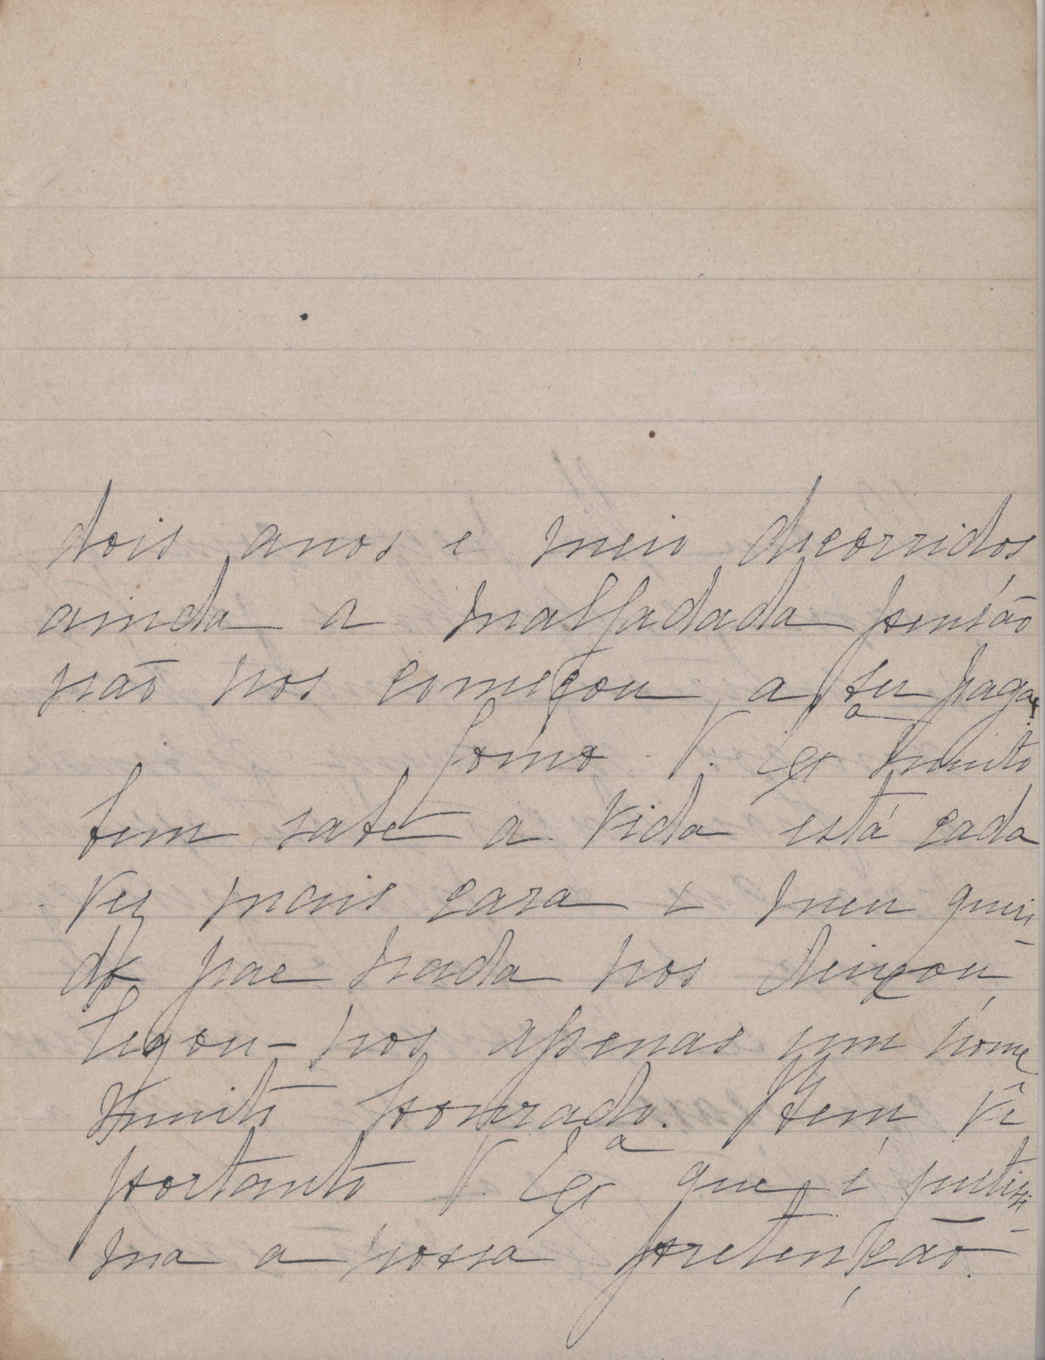 dois anos e meio decorridos
ainda a malfadada pensão
não nos começou a ser paga.
Como V. Exª muito
bem sabe a vida está cada
vez mais cara e meu queri-
do pae nada nos deixou,
legou-nos apenas um nome
muito honrado. Bem vê
portanto V. Exª que é justissi-
ma a nossa pretenção.